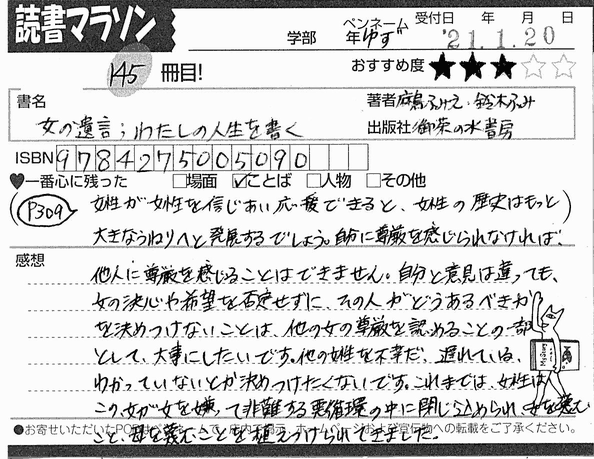 読書マラソン
学部 年 ペンネーム ゆず 受付日 年 月 日 '21.1.20
145 冊目! おすすめ度 ★★★☆☆
書名 著者 麻鳥みえ・鈴木ふみ
女の遺言;わたしの人生を書く 出版社 御茶の水書房
ISBN 9784275005090
♥一番心に残った □場面 ☑ことば □人物 □その他
P309
女性が女性を信じあい応援できると、女性の歴史はもっと
大きなうねりへと発展するでしょう。自分に尊厳を感じられなければ、
感想
他人に尊厳を感じることはできません。自分と意見は違っても、
女の決心や希望を否定せずに、その人がどうあるべきか
を決めつけないことは、他の女の尊厳を認めることの一部
として、大事にしたいです。他の女性を不幸だ、遅れている、
わかっていないとか決めつけたくないです。これまでは、女性は
この女が女を嫌って非難する悪循環の中に閉じ込められ、女を蔑む
●お寄せいただいたPOPは 店内で掲示、ホームページおよび宣伝物への転載をご了承ください。
こと、母を蔑むことを植えつけられてきました。